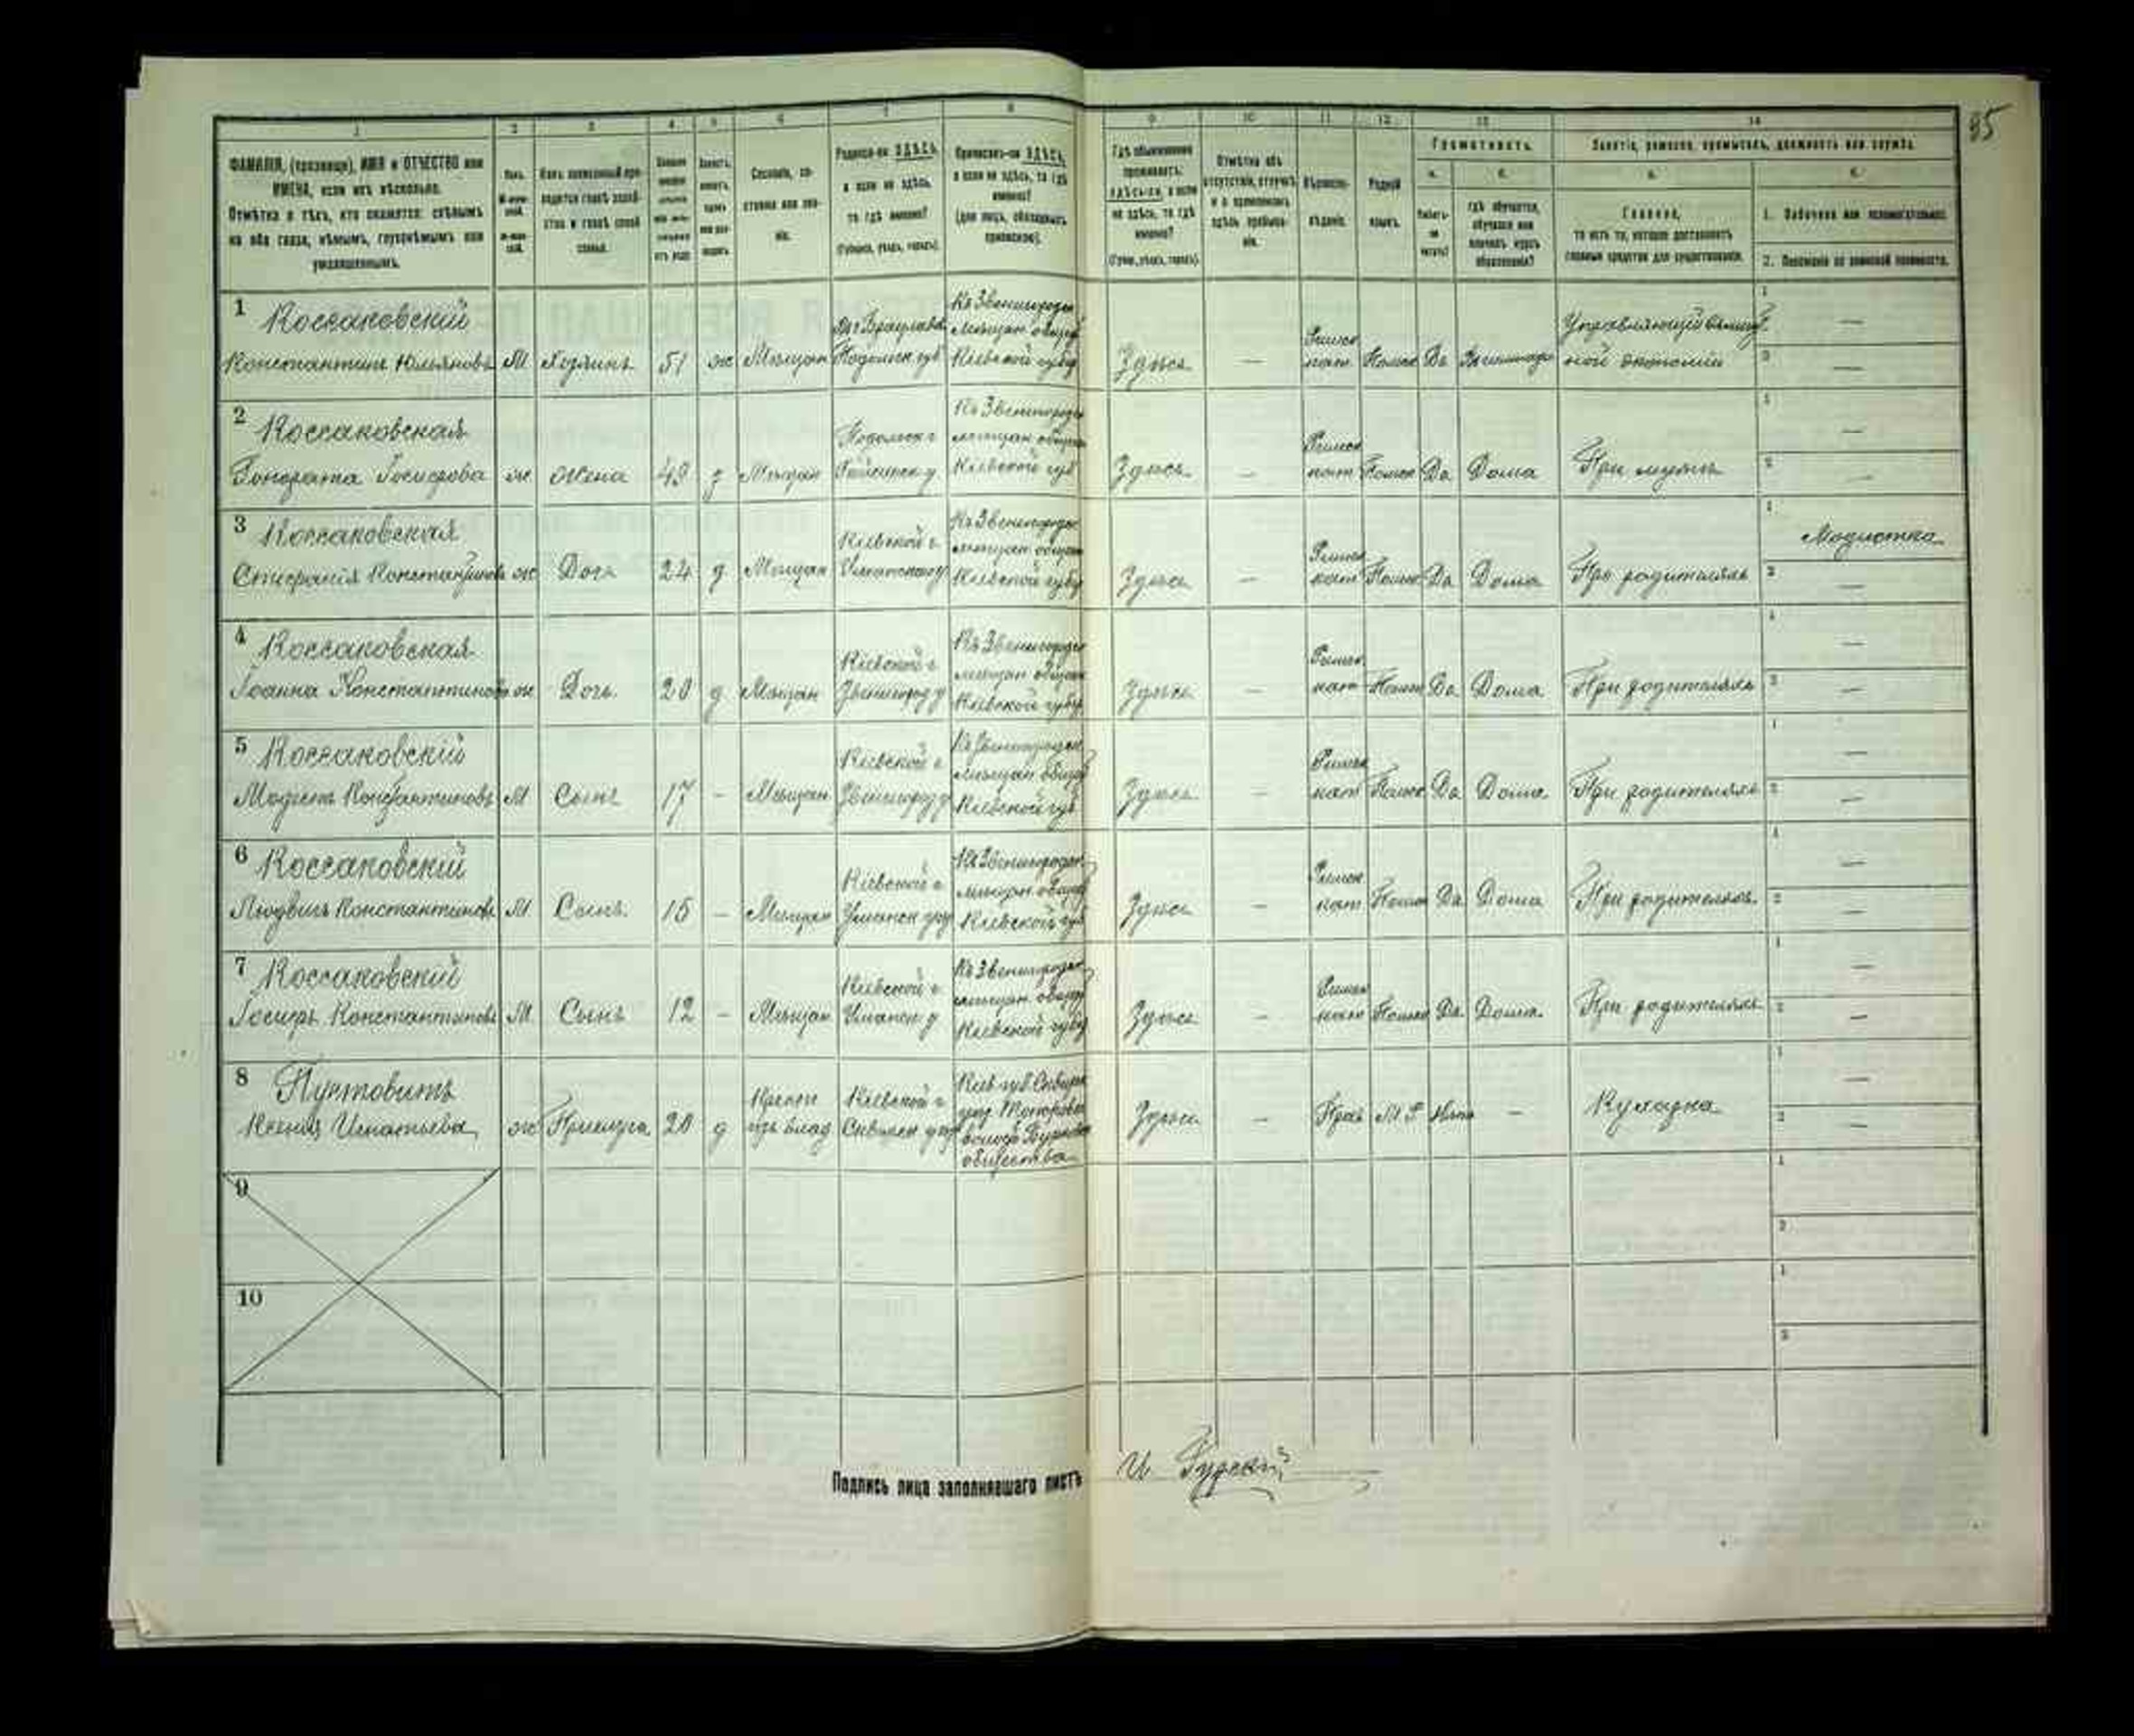 35
1 2 3 4 5 6 7 8 9 10 11 12 13 14
ФАМИЛІЯ, (прозвище), ИМЯ и ОТЧЕСТВО или
ИМЕНА, если ихъ нѣсколько.
Отмѣтка о тѣхъ, кто окажется: слѣпымъ
на оба глаза, нѣмымъ, глухонѣмымъ или
умалишеннымъ.
Полъ.
Какъ записанный при-
ходится главѣ хозяй-
ства и главѣ своей
семьи.
Сословіе, со-
стояніе или зва-
ніе.
Родился-ли ЗДѢСЬ,
а если не здѣсь,
то гдѣ именно?
(Губернія, уѣздъ, городъ).
Приписанъ-ли ЗДѢСЬ,
а если не здѣсь, то гдѣ
именно?
(для лицъ, обязанныхъ
припискою).
Гдѣ обыкновенно
проживаетъ:
ЗДѢСЬ-ЛИ, а если
не здѣсь, то гдѣ
именно?
(Губер., уѣздъ, городъ).
Отмѣтка объ
отсутствіи, отлучкѣ
и о временномъ
здѣсь пребыва-
ніи.
Вѣроиспо-
вѣданіе.
Родной
языкъ.
Грамотность.
а. б.
Умѣетъ-
ли
читать?
гдѣ обучается,
обучался или
кончилъ курсъ
образованія?
Занятіе, ремесло, промыселъ, должность или служба.
а. б.
Главное,
то есть то, которое доставляетъ
главныя средства для существованія.
1. Побочное или вспомогательное.
2. Положеніе по воинской повинности.
1 Коссаковскій
Константинъ Юльяновъ М Хозяинъ 51 ж Мѣщан
Подольск губ
Къ Звенигородск
мѣщан общес
Кіевской губер
Здѣсь —
Римск
кат Польск Да
Управляющій
ной экономіи
—
—
2 Коссаковская
Гонората Іосифова ж Жена 49 з Мѣщан
Подольск г
Гайсинск у.
Къ Звенигородск
мѣщан общес
Кіевской губ
Здѣсь —
Римск
кат Польск Да Дома При мужѣ
—
—
3 Коссаковская
Стефанія Константинова ж Дочь 24 д Мѣщан
Кіевской г.
Уманского у
Къ Звенигородск
мѣщан общес
Кіевской губер
Здѣсь —
Римск
кат Польск Да Дома При родителяхъ
Модистка
—
4 Коссаковская
Іоанна Константинова ж Дочь 20 д Мѣщан
Кіевской г
Звенигород у
Къ Звенигородск
мѣщан общес
Кіевской губер
Здѣсь —
Римск
кат Польск Да Дома При родителяхъ
—
—
5 Коссаковскій
Модестъ Константиновъ М Сынъ 17 – Мѣщан
Кіевской г
Звенигород у
Къ Звенигородск
мѣщан общес
Кіевской губ
Здѣсь —
Римск
кат Польск Да Дома При родителяхъ
—
—
6 Коссаковскій
Людвигъ Константиновъ М Сынъ 15 – Мѣщан
Кіевской г
Уманск у
Къ Звенигородск
мѣщан общес
Кіевской губ
Здѣсь —
Римск
кат Польск Да Дома При родителяхъ
—
—
7 Коссаковскій
Іосифъ Константиновъ М Сынъ 12 – Мѣщан
Кіевской г
Уманск у
Къ Звенигородск
мѣщан общес
Кіевской губер
Здѣсь —
Римск
кат Польск Да Дома При родителяхъ
—
—
8 Пустовитъ
Ксенія Игнатьева ж Прислуга 20 д
Крест
изъ влад
Кіевской г
Сквирск уѣз
Кіев губ Сквирск
общества
Здѣсь — Прав М Р Нѣтъ – Кухарка
—
—
9
10
Подпись лица заполнявшаго листъ И. Гурскій